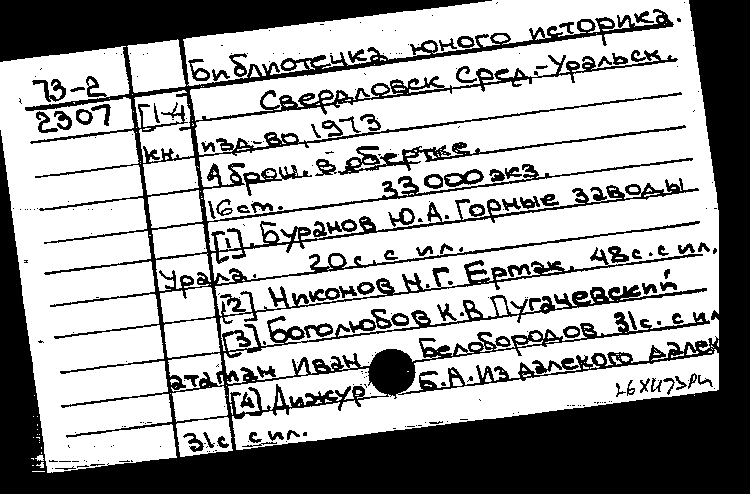 Библиотечка юного историка.
73-2
2307 [1-4]. Свердловск, Сред.-Уральск.
кн. изд-во, 1973
4 брош. в обертке.
16 cm. 33 000 экз.
[1]. Буранов Ю.А. Горные заводы
Урала. 20 с. с ил.
[2]. Никонов Н.Г. Ермак. 48 с. с ил.
[3]. Боголюбов К.В. Пугачевский
атаман Иван Белобородов 31 с. с ил
[4]. Дижур Б.А. Из далекого далек
31 с с ил.